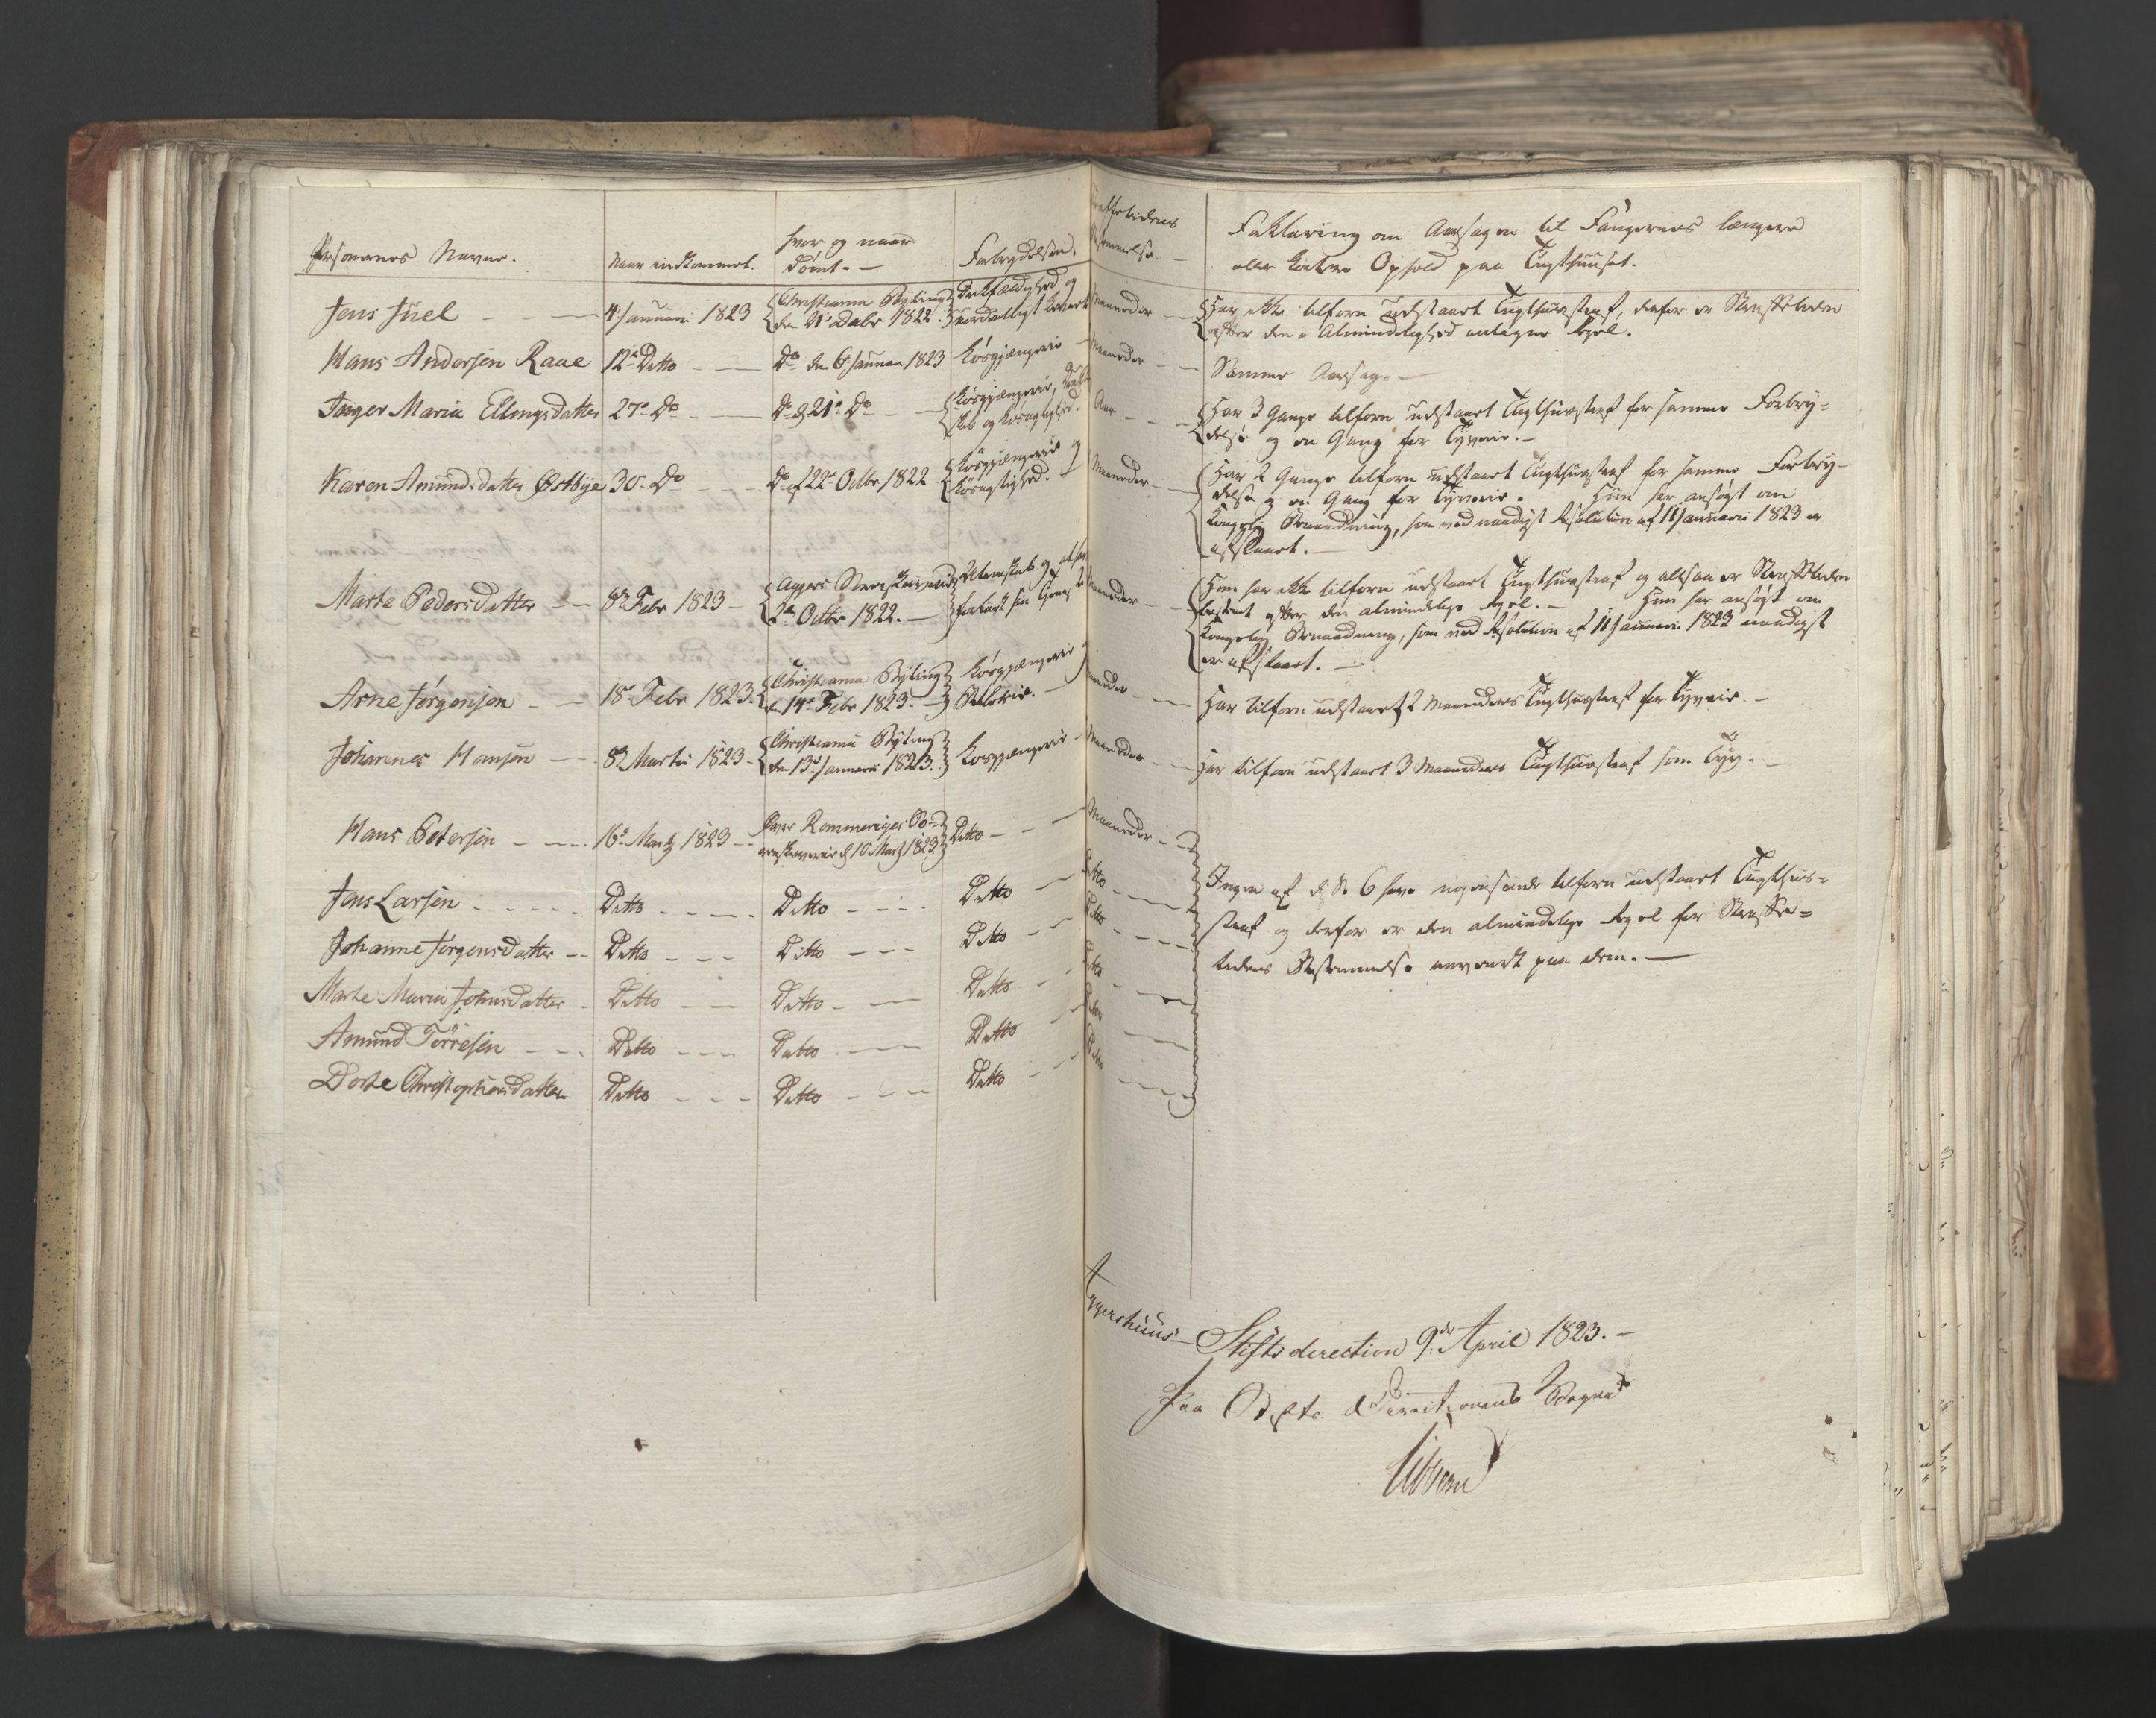 Personernes Navne.
Naar indkommet.
Hvor og naar
dømt. —
Forbrydelsen.
Straffetidens
Bestemmelse. —
Forklaring om Aarsagen til Fangernes længere
eller kortere Ophold paa Tugthuuset.
Jens Juel — — —
4 Januari 1823
Christiania Byeting
den 21de Decbr 1822.
Drikfældighed og
uordentligt Levnet
Maaneder — —
Har ikke tilforn udstaaet Tugthuusstraf, derfor er Straffetiden
efter den i Almindelighed antagne Regel.
Hans Andersen Raae
12te Ditto — —
Do den 6 Januar 1823
Løsgjængerie —
Maaneder — —
Samme Aarsag. —
Inger Maria Ellingsdatter
27de Do — —
Do d 21de Do —
Løsgjængerie,
og Løsagtighed.
Aar — — —
Har 3 Gange tilforn udstaaet Tugthuusstraf for samme Forbry=
delse og en Gang for Tyverie. —
Karen Amundsdatter Østbye
30te Do — —
Do d 22de Octbr 1822
Løsgjængerie og
Løsagtighed.
Maaneder —
Har 2 Gange tilforn udstaaet Tugthuusstraf for samme Forbry-
delse og en Gang for Tyverie. Hun har ansøgt om
Kongelig Benaadning, som ved naadigst Resolution af 11 Januarii 1823 er
afslaaet. —
Marte Pedersdatter —
8de Febr 1823 —
Aggers Sorenskriverie
2den Octbr 1822. —
Maaneder — —
Hun har ikke tilforn udstaaet Tugthuusstraf og altsaa er Straffetiden
bestemt efter den almindelige Regel. — Hun har ansøgt om
Kongelig Benaadning, som ved Resolution af 11 Januari 1823 naadigst
er afslaaet. —
Arne Jørgensen — —
18de Febr 1823.
Christiania Byeting
den 14de Febr 1823. —
Løsgjængerie og
Betlerie. —
Maaneder — —
Har tilforn udstaaet 2 Maaneders Tugthuusstraf for Tyverie. —
Johannes Hansen —
8de Martii 1823 —
Christiania Byeting
den 13de Januarii 1823.
Løsgjængerie —
Maaneder —
Har tilforn udstaaet 3 Maaneders Tugthuusstraf som Tyv. —
Hans Petersen — —
16de Martz 1823 —
Øvre Rommeriges So=
renskriverie d 10 Martz 1823.
Ditto — —
Maaneder — —
Jens Larsen - - - -
Ditto — — —
Ditto — — —
Ditto —
Ditto — —
Ingen af disse 6 have nogensinde tilforn udstaaet Tugthuus=
straf og derfor er den almindelige Regel for Straffe=
tidens Bestemmelse anvendt paa dem. —
Johanne Jørgensdatter —
Ditto — — —
Ditto — —
Ditto — —
Ditto — — —
Marte Maria Johnsdatter -
Ditto — —
Ditto — —
Ditto —
Ditto — —
Amund Torresen — —
Ditto — — —
Ditto — —
Ditto —
Ditto — —
Dorte Christophersdatter
Ditto — — —
Ditto — — —
Ditto — —
Ditto — — —
Aggershuus Stiftsdirection 9de April 1823. —
Paa Stifts Directionens Vegne